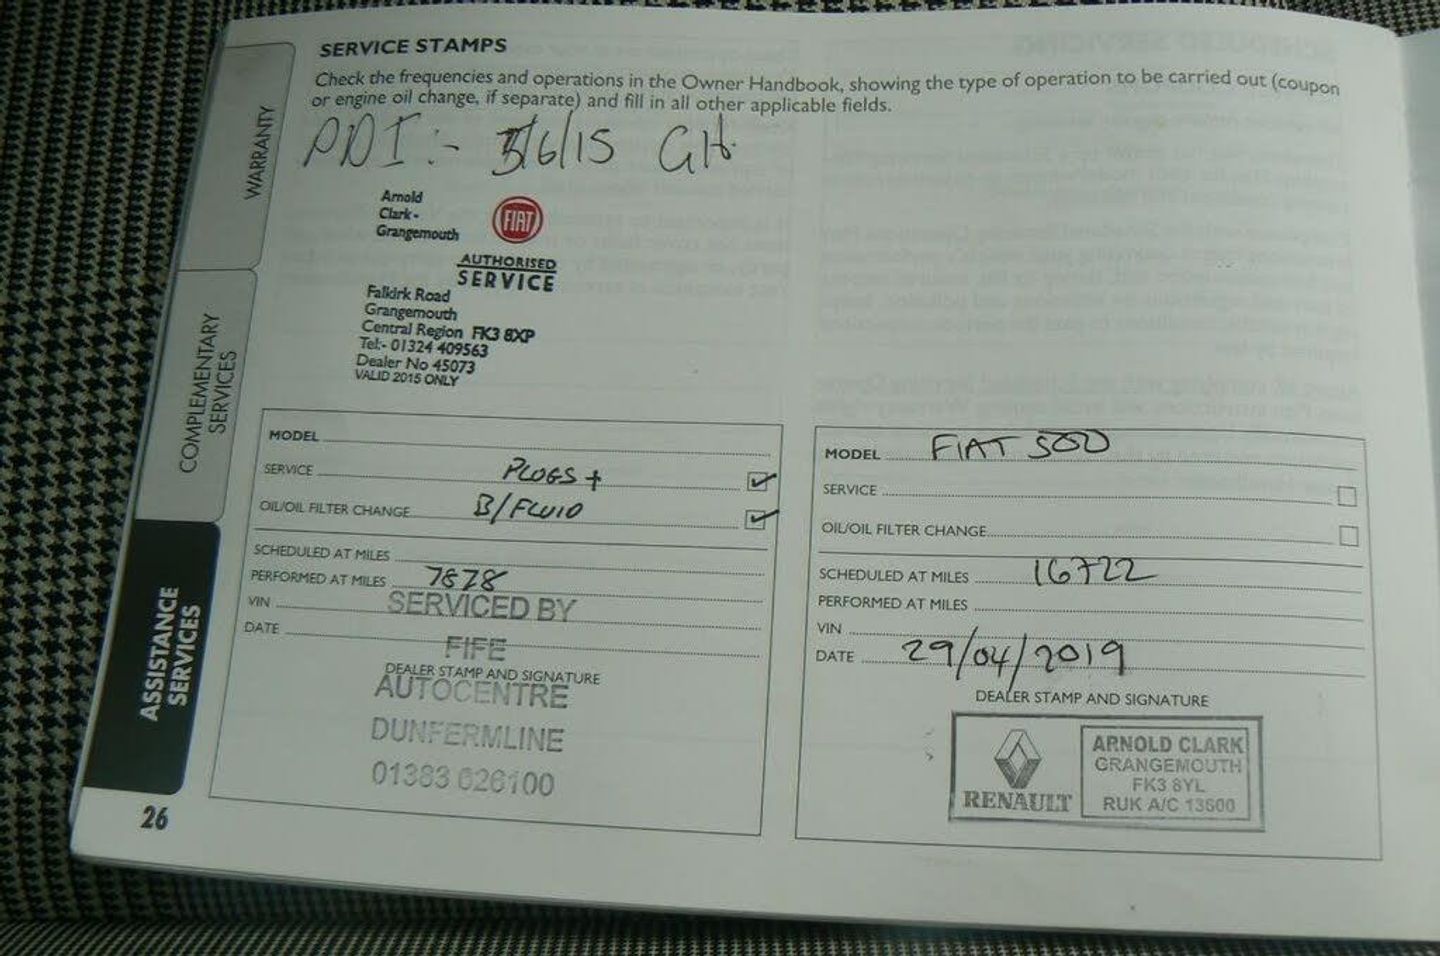 SERVICE STAMPS
Check the frequencies and operations in the Owner Handbook, showing the type of operation to be carried out (coupon
or engine oil change, if separate) and fill in all other applicable fields.
PDI:- 5/6/15 GH
Arnold
Clark-
Grangemouth
FIAT
AUTHORISED
SERVICE
Falkirk Road
Grangemouth
Central Region FK3 8XP
Tel:- 01324 409563
Dealer No 45073
VALID 2015 ONLY
WARRANTY
COMPLEMENTARY
SERVICES
ASSISTANCE
SERVICES
MODEL
SERVICE PLUGS +
OIL/OIL FILTER CHANGE B/FLUID
SCHEDULED AT MILES
PERFORMED AT MILES 7878
VIN
SERVICED BY
DATE
FIFE
DEALER STAMP AND SIGNATURE
AUTOCENTRE
DUNFERMLINE
01383 626100
MODEL FIAT 500
SERVICE
OIL/OIL FILTER CHANGE
SCHEDULED AT MILES 16722
PERFORMED AT MILES
VIN
DATE 29/04/2019
DEALER STAMP AND SIGNATURE
RENAULT
ARNOLD CLARK
GRANGEMOUTH
FK3 8YL
RUK A/C 13600
26